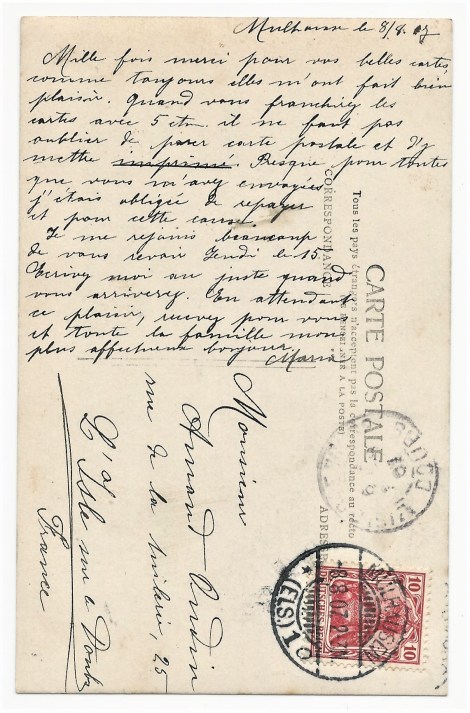 Mulhouse le 8/8. 07
Mille fois merci pour vos belles cartes
comme toujours elles m'ont fait bien
plaisir. Quand vous franchirez les
cartes avec 5 ctm. il ne faut pas
oublier de parer carte postale et d'y
mettre imprimé. Presque pour toutes
que vous m'avez envoyées
j'étais obligée de repayer
et pour cette cause.
Je me rejouis beaucoup
de vous revoir Jeudi le 15.
Ecrivez moi au juste quand
vous arriverez. En attendant
ce plaisir, recevez pour vous
et toute la famille mon
plus affectueux bonjour.
Maria
CARTE POSTALE
Tous les pays étrangers n'acceptent pas la correspondance au recto
(SE RENSEIGNER A LA POSTE)
CORRESPONDANCE
ADRESSE
Monsieur
Armand
rue de la 25
L'Isle sur le Doubs
France
DOUBS
MÜLHAUSEN
8.8.07
(ELS.)
10 10